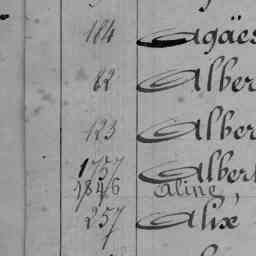 184 Agaës
82 Alber
123 Alber
1757 Albert
1846 Aline,
257 Alix